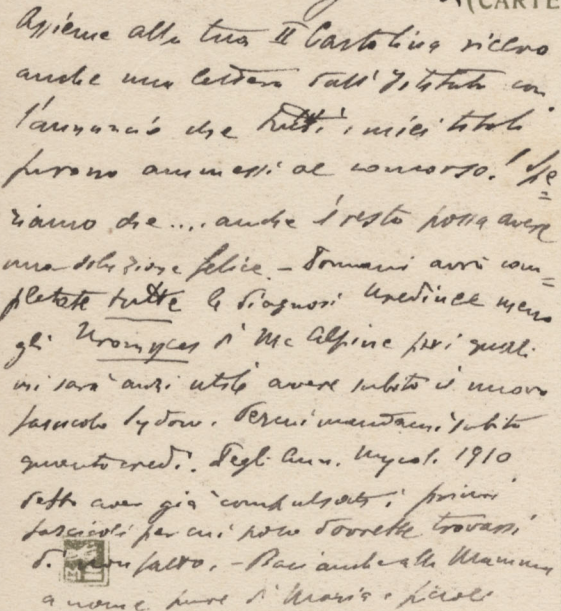 (CARTE
Assieme alla tua II Cartolina ricevo
anche una lettera dall'Istituto con
l'annuncio che tutti i miei titoli
furono ammessi al concorso! Spe=
riamo che .... anche il resto possa avere
una soluzione felice. - Domani avrò com=
pletate tutte le diagnosi Uredinee meno
gli Uromyces di Mc Alpine per i quali
mi sarà anzi utile avere subito il nuovo
fascicolo Sydow. Perciò mandami subito
quanto credi. Degli Ann. Mycol. 1910
detto aver già compulsati i primi
fascicoli per cui poco dovreste trovarsi
di - Baci anche alla Mamma
a nome pure di Maria e piccoli